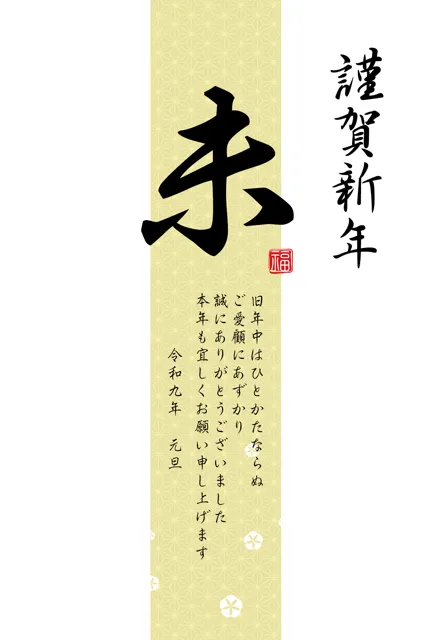 謹賀新年
未
福
旧年中はひとかたならぬ
ご愛顧にあずかり
誠にありがとうございました
本年も宜しくお願い申し上げます
令和九年 元旦